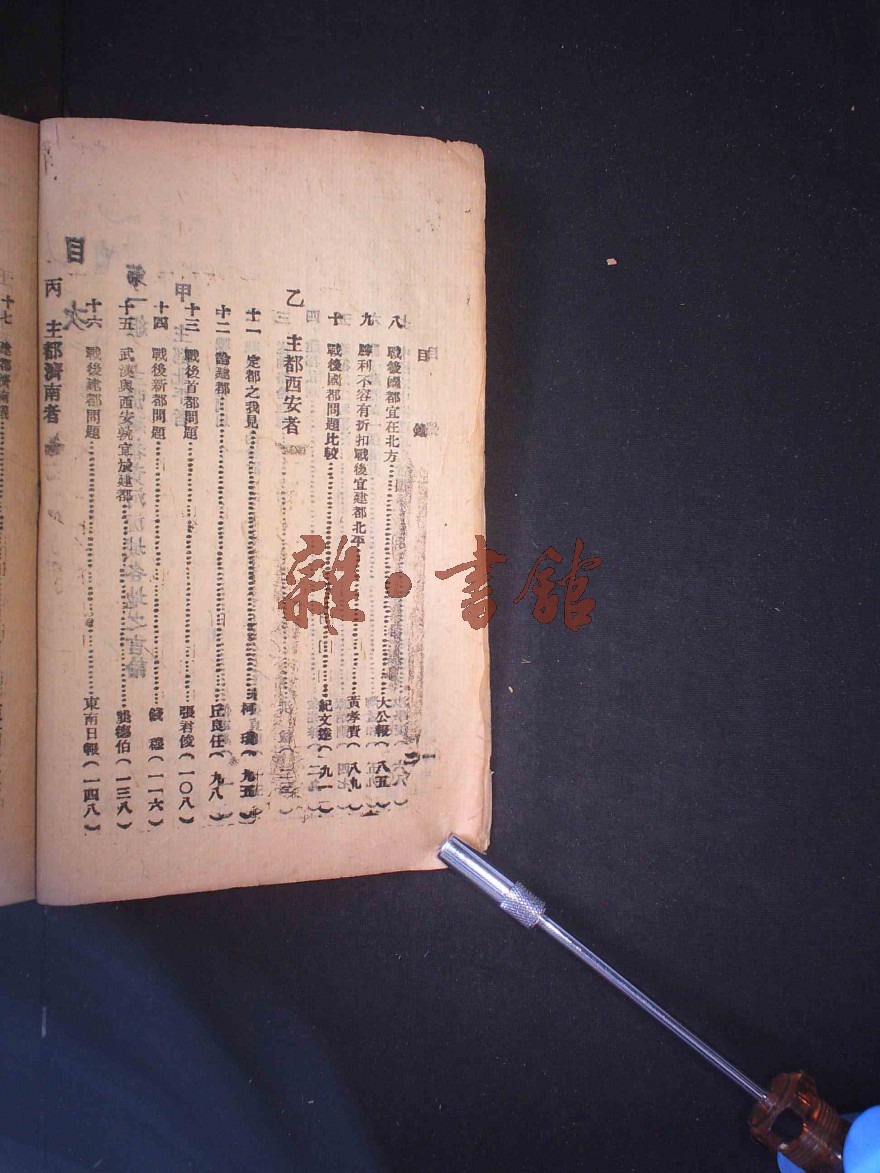 目錄
八 戰後國都宜在北方 大公報(八五)
九 勝利不容有折扣戰後宜建都北平 黃孝貴(八九)
十 戰後國都問題比較 紀文達(九一)
乙 主都西安者
十一 定都之我見 柯璜(九五)
十二 論建都 丘良任(九八)
十三 戰後首都問題 張君俊(一〇八)
十四 戰後新都問題 錢穆(一一六)
十五 武漢與西安孰宜於建都 龔德伯(一三八)
十六 戰後建都問題 東南日報(一四八)
丙 主都濟南者
十七 建都濟南議
雜·書館